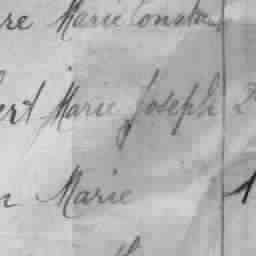 re Marie Constan
ert Marie Joseph 2
n Marie 1